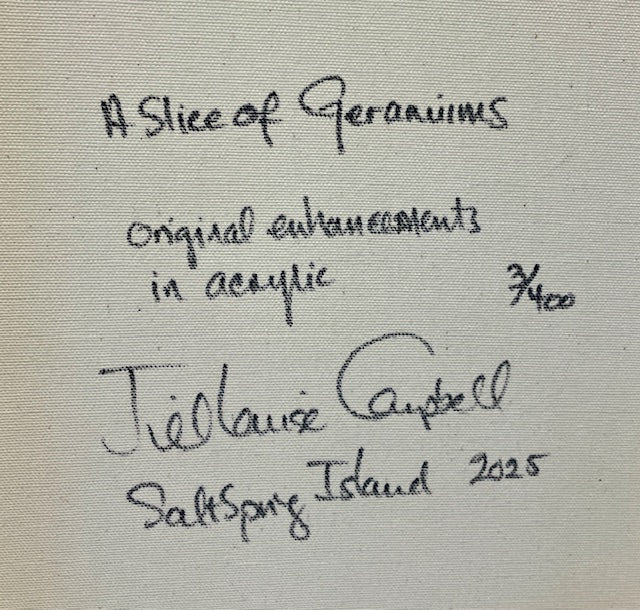 A Slice of Geraniums
original enhancements
in acrylic
3/400
Jill Louise Campbell
SaltSpring Island 2025